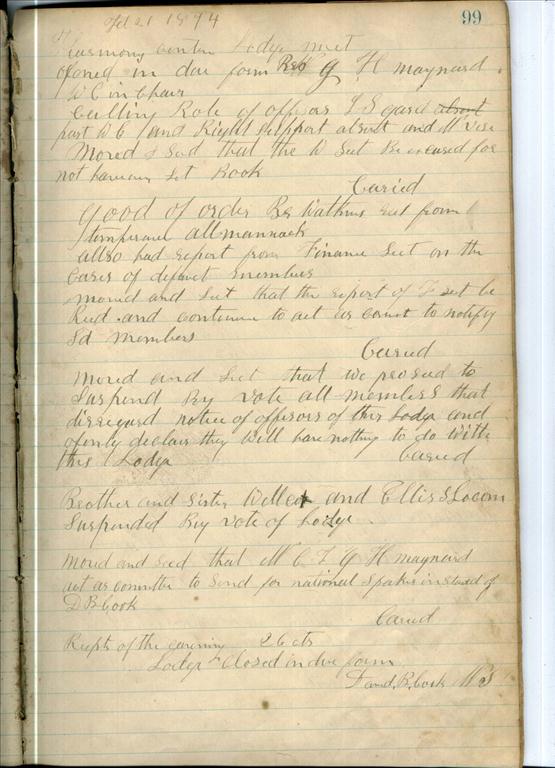 99
Feb 21 1874
Harmony Lodge met
opened in due form G H maynard
W C in Chair
Calling Role of offisors absent
part W C and Right Support absent and W Vise
Moved & Secd that the W Sect Be excused for
not haveing Sect Book
Caried
good of order Br Watkins from
temperance allmannack
allso had report from Finance Sect on the
Cases of definct members
moved and Sect that the report of F Sect be
Recd and continue to act as comit to notify
Sd members
Caried
moved and Sect that we proseed to
Suspend By vote all members that
disregard notice of offisors of this Lodge and
openly declair they will have nothing to do with
this Lodge Caried
Brother and Sister and Ellis Slocom
Suspended By vote of Lodge
moved and Secd that W C T G H maynard
act as committe to Send for national Speaker instead of
D B Cook
Caried
Recpts of the evening 26 cts
Lodge Closed in due form
David B. Cook W S